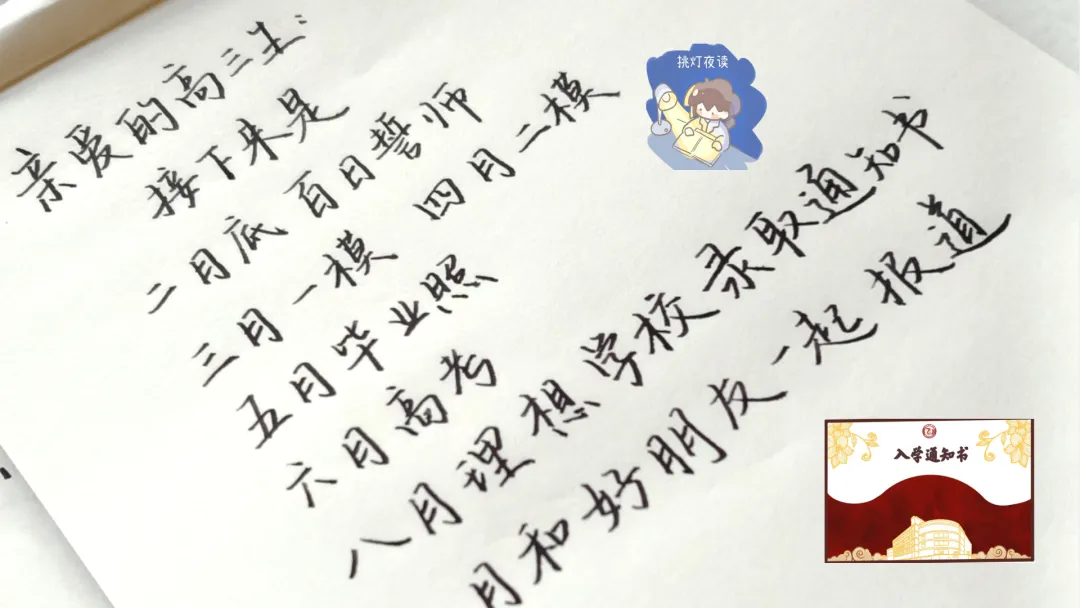 亲爱的高三生:
接下来是
二月底 百日誓师
三月一模 四月二模
五月毕业照
六月高考
八月理想学校录取通知书
月和好朋友一起报道
挑灯夜读
入学通知书